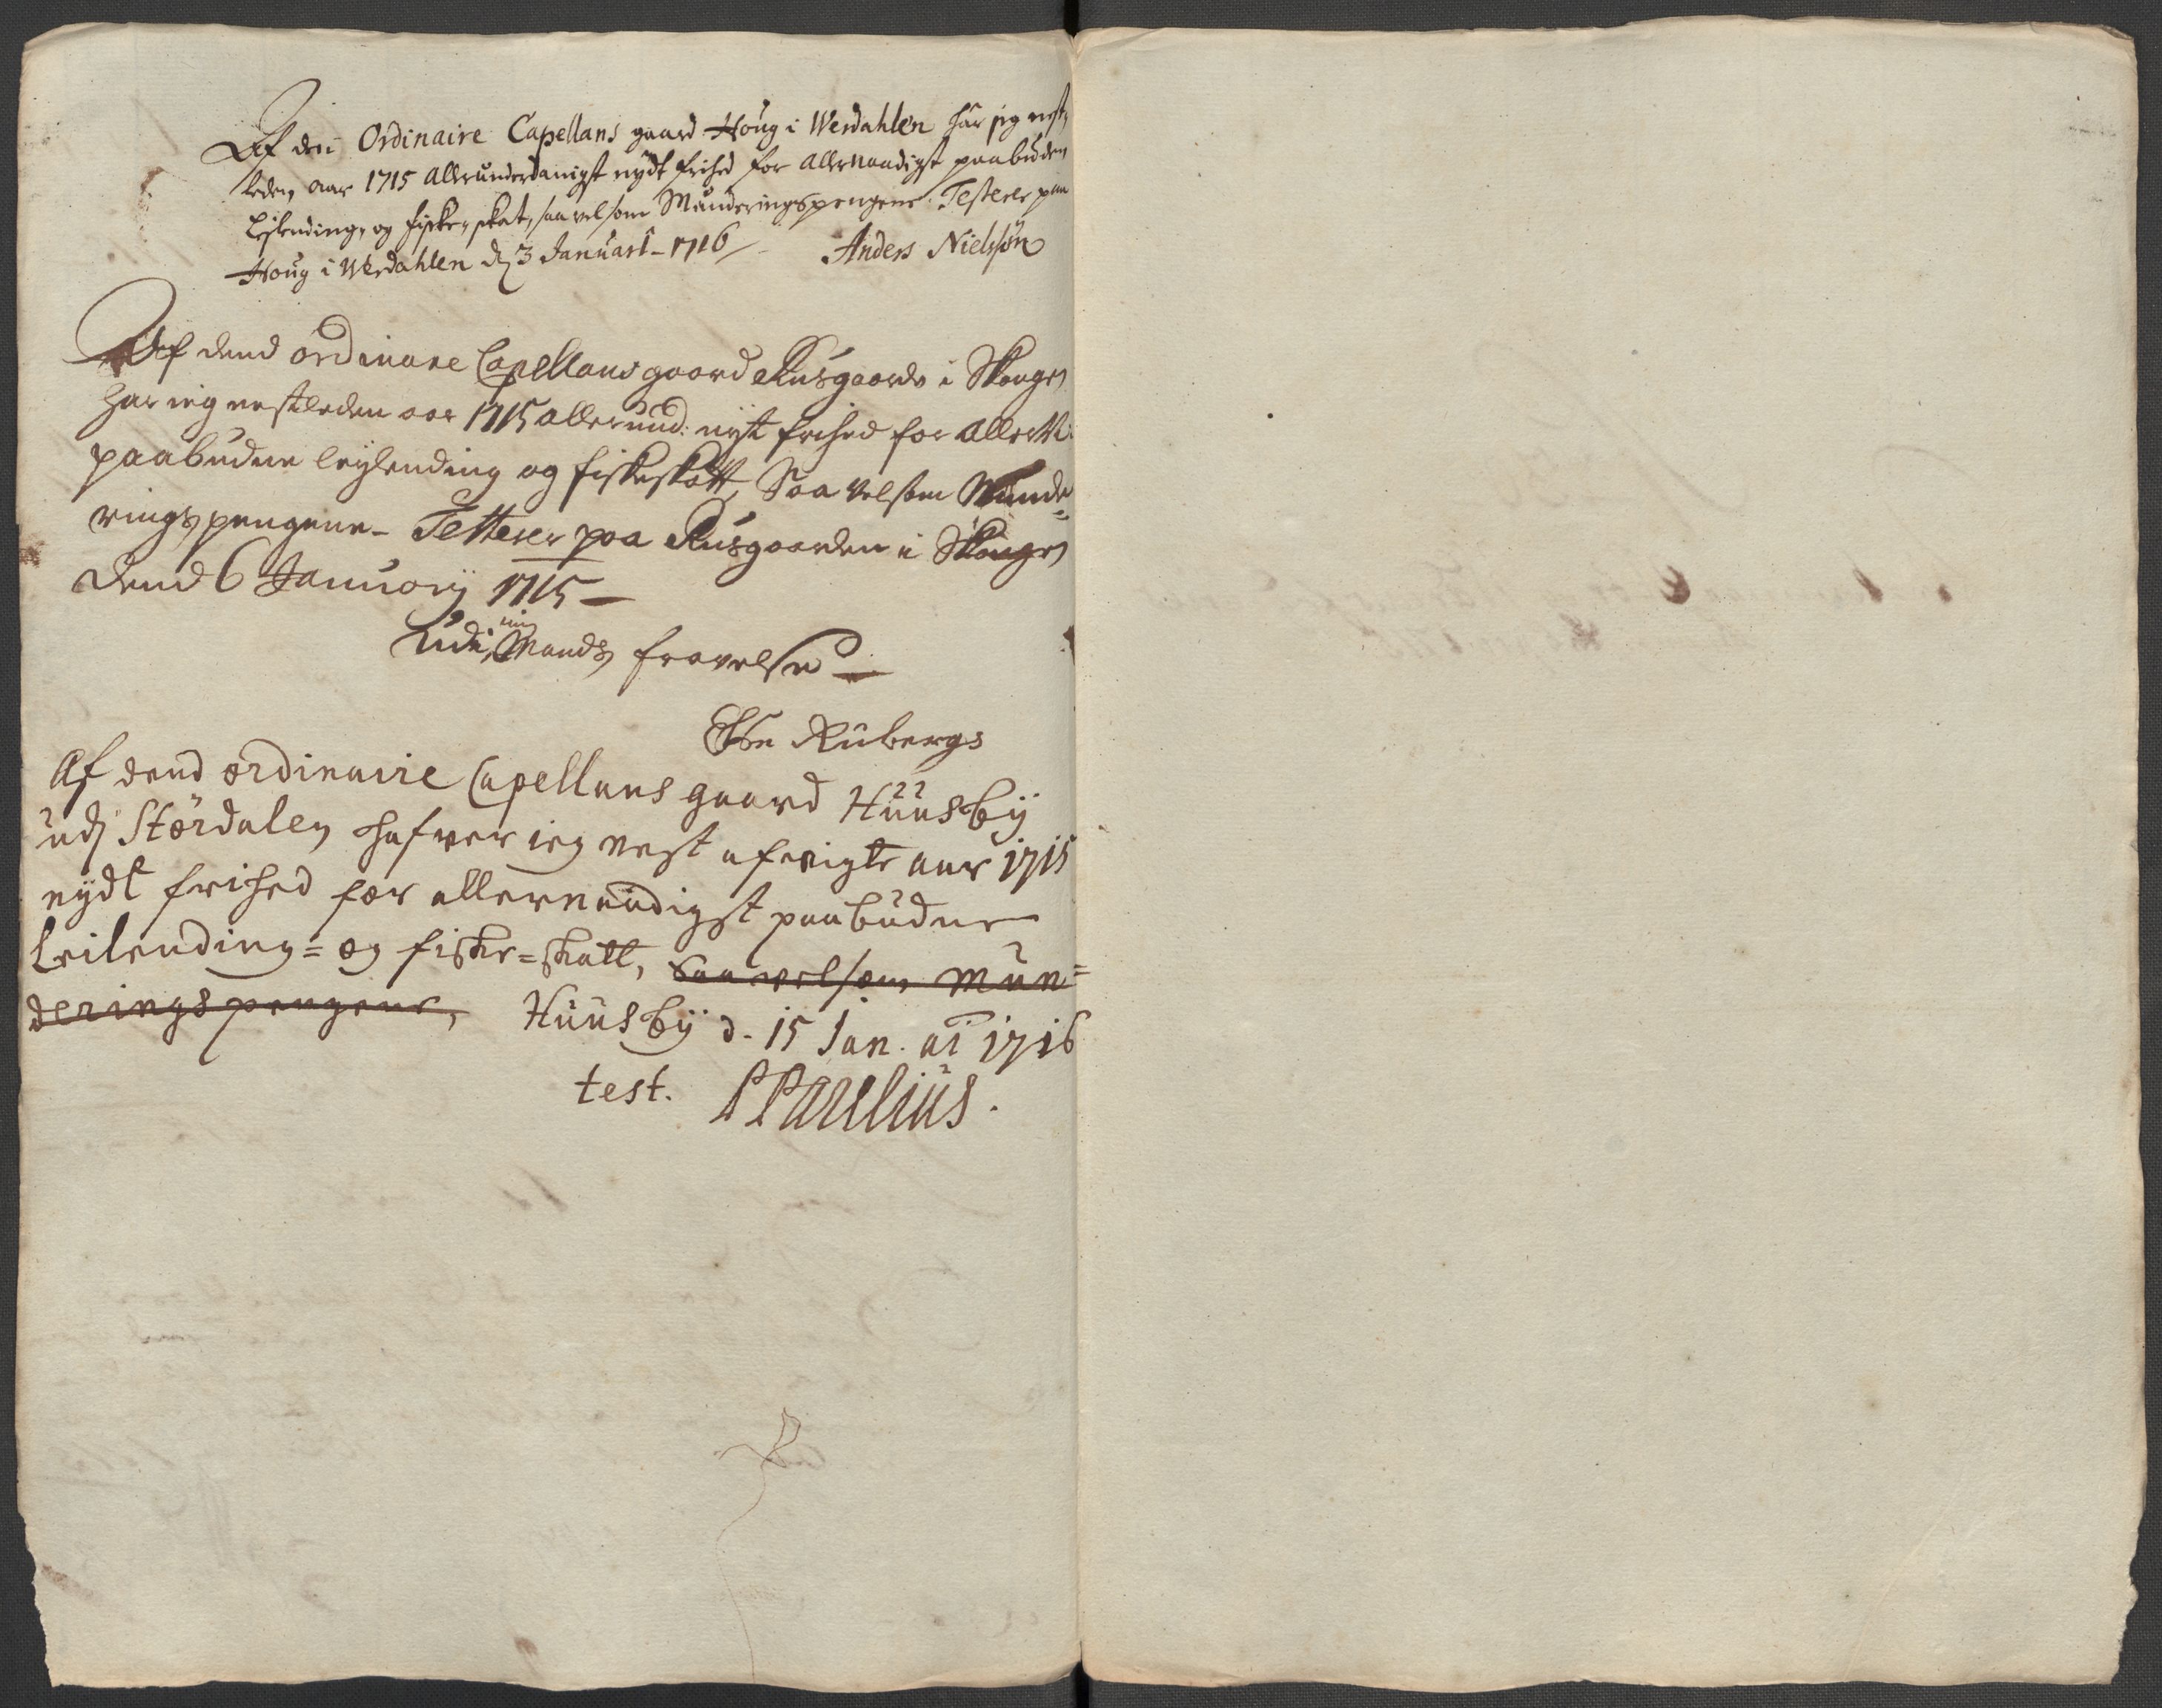 Af den Ordinaire Capellans gaard Houg i Werdahlen har jeg nest,
leden aar 1715 allerunderdanigst nydt frihed for allernaadigst paabudden
Leylending, og fiske, skat, saa vel som Munderingspengene. Testerer paa
Houg i Werdahlen d. 3 Januari - 1716
Anders Nielssøn
Af dend ordinare Capellans gaard Rusgaards i Skougn
har ieg nestleden aar 1715 allerund: nyt frihed for aller N:
paabudne leylending og fiskeskatt, Saa velsom Munde=
ringspengene - Testerer paa Rusgaarden i Skougn
dend 6 Januarij 1715 -
Udi min Mands fravelse
Else Rubergs
Af dend ordinaire Capellans gaard Huusbÿ
udj Stördalen hafver ieg nest afvigte aar 1715
nÿdt frihed for allernaadigst paabudne
Leilending= og fiske=skatt, saa velsom Mun=
deringspengene, Huusbÿ d. 15 Jan. ai 1716
test. PParelius.